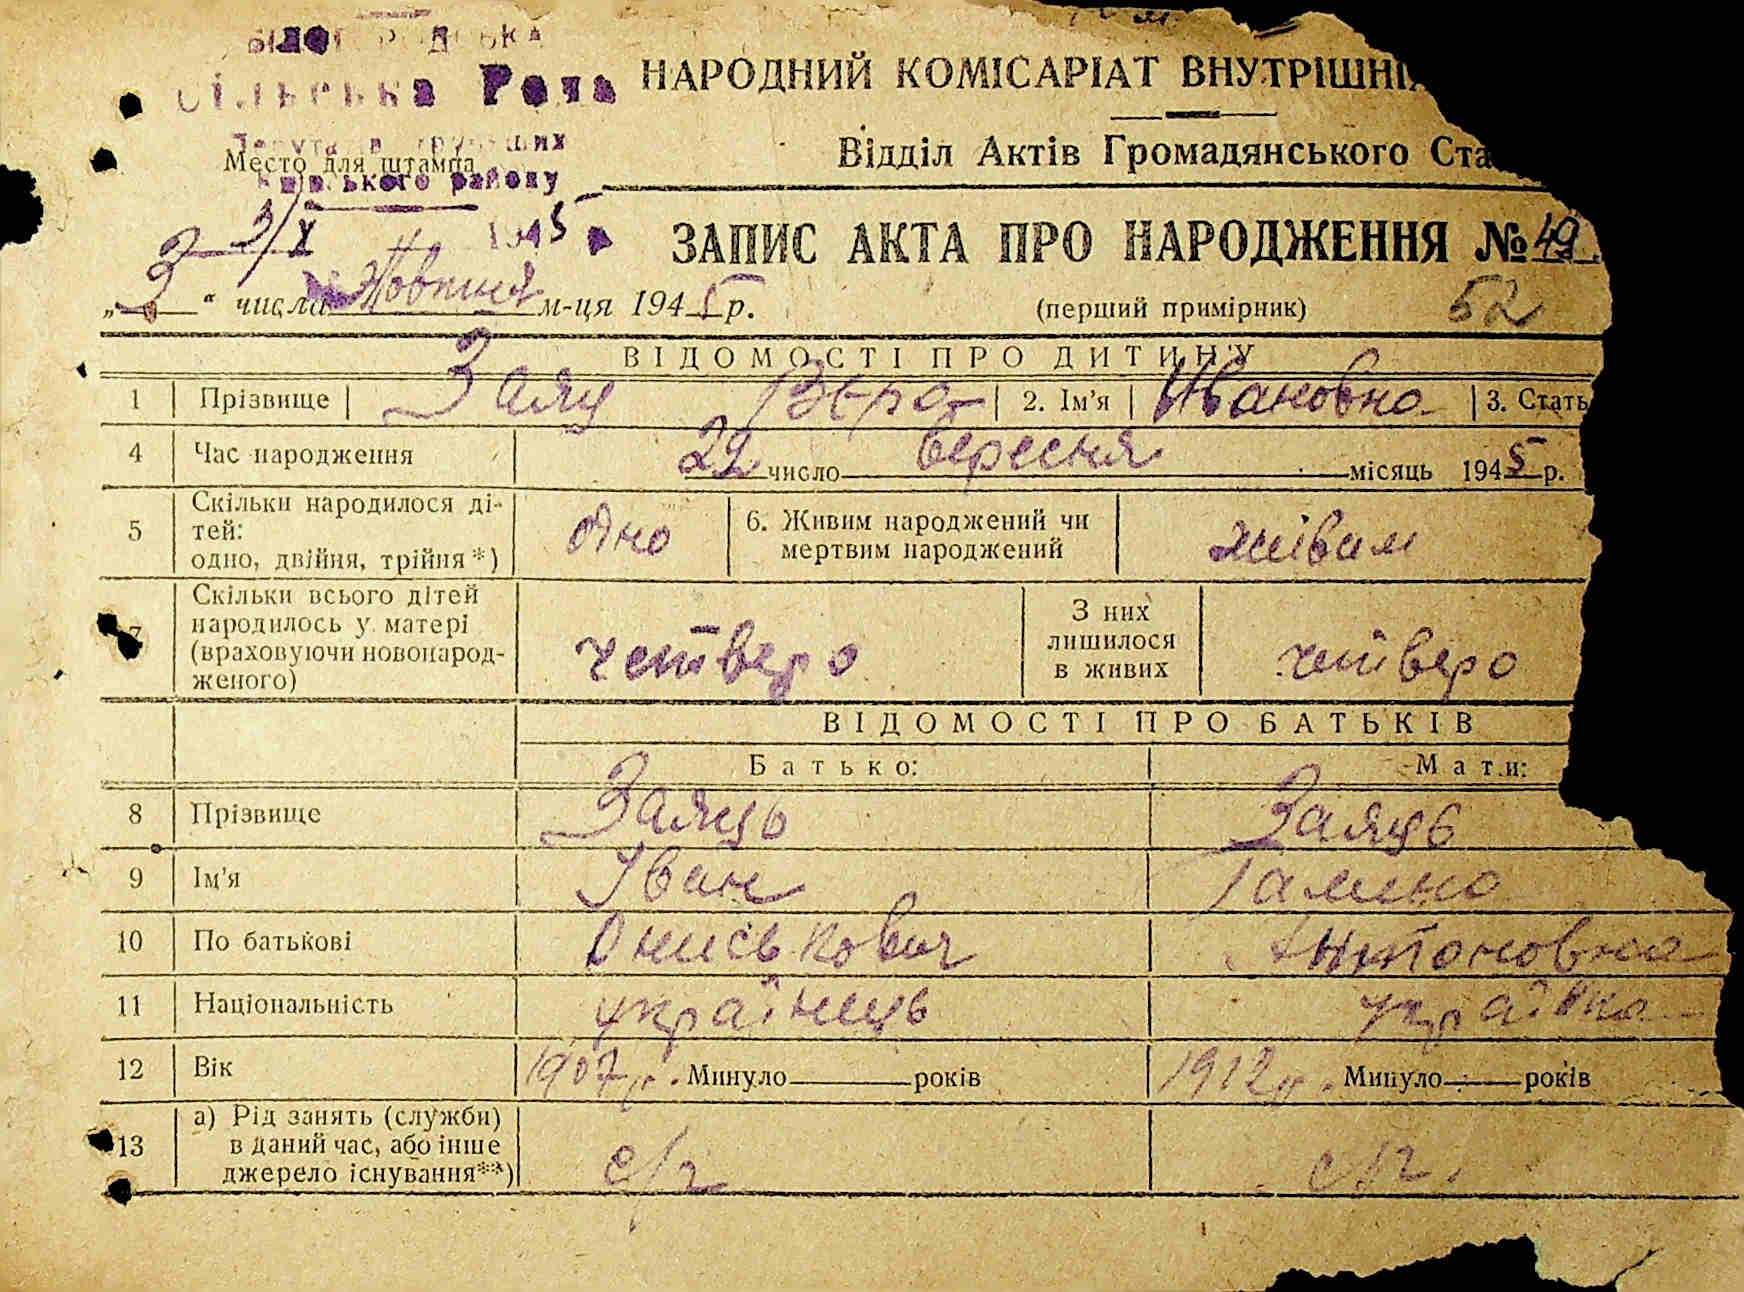 сільська Рада
Место для штампа
району
3/X 1945
НАРОДНИЙ КОМІСАРІАТ ВНУТРІШНІ
Відділ Актів Громадянського Ста
ЗАПИС АКТА ПРО НАРОДЖЕННЯ № 49
„3“ числа Жовтня м-ця 1945 р.
(перший примірник) 52
ВІДОМОСТІ ПРО ДИТИНУ
1 Прізвище Заяц Вера 2. Ім'я Ивановна 3. Стать
4 Час народження 22 число вересня місяць 1945 р.
5 Скільки народилося ді-
тей:
одно, двійня, трійня*) одно
6. Живим народжений чи
мертвим народжений живим
7 Скільки всього дітей
народилось у матері
(враховуючи новонарод-
женого) четверо
З них
лишилося
в живих четверо
ВІДОМОСТІ ПРО БАТЬКІВ
Батько: Мати:
8 Прізвище Заяць Заяць
9 Ім'я Іван Галина
10 По батьковіОниськович Антоновна
11 Національність українець українка
12 Вік 1907 р. Минуло років 1912 р. Минуло років
13 а) Рід занять (служби)
в даний час, або інше
джерело існування**) с/г с/г.